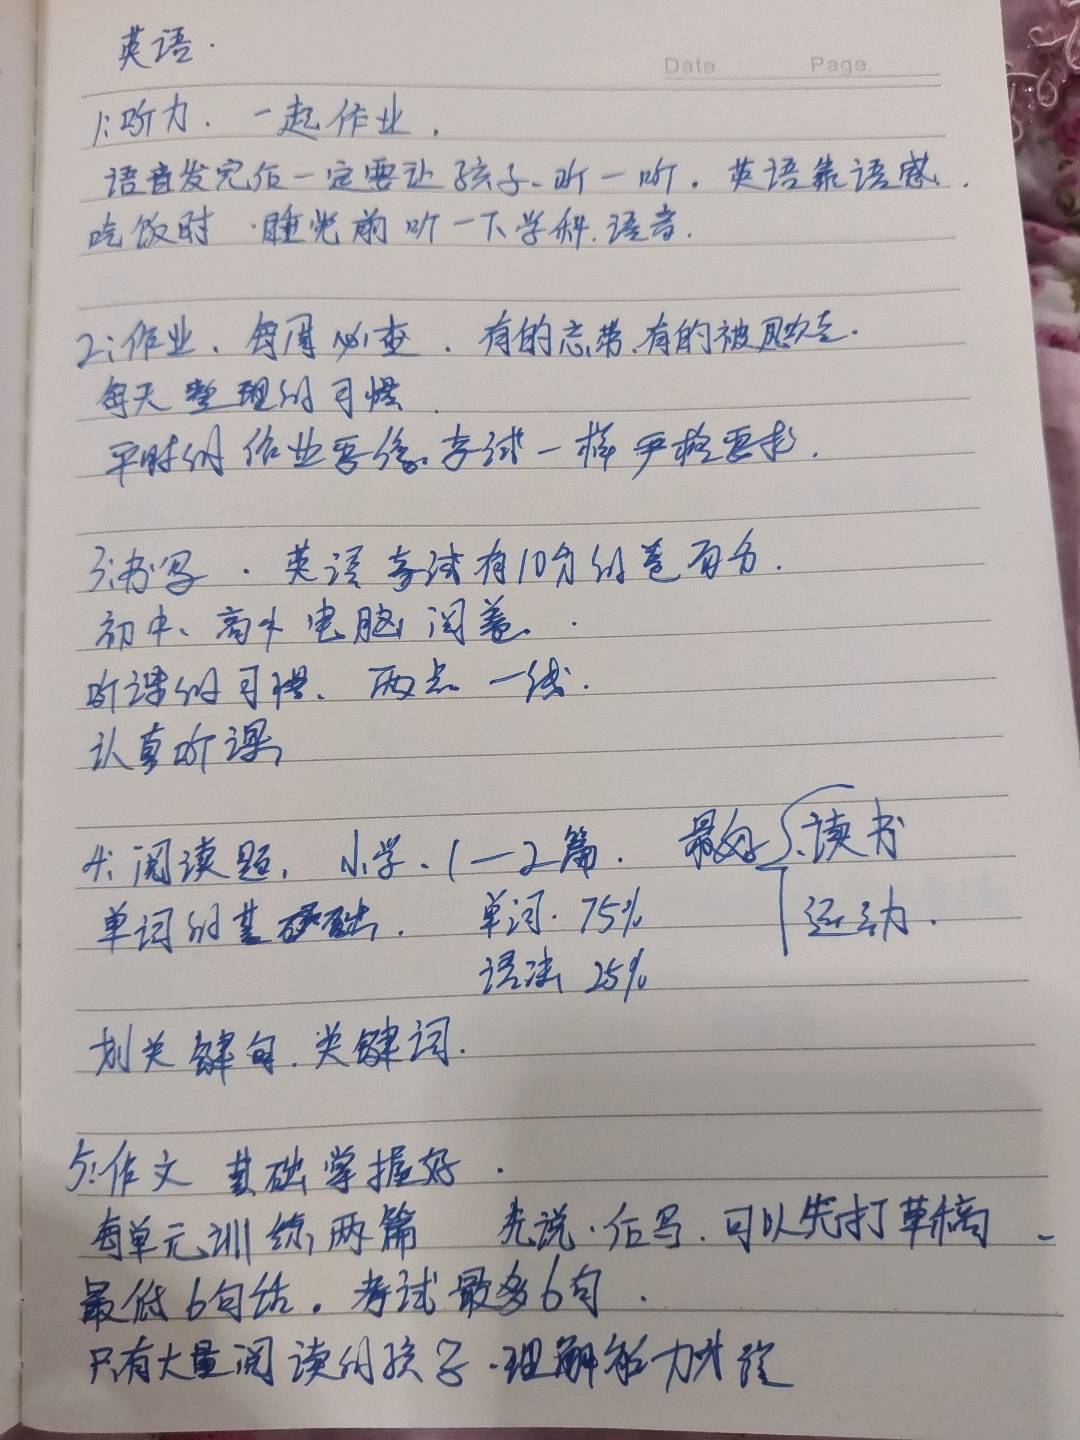 英语.
Date Page
1:听力. 一起作业.
语音发完后一定要让孩子、听一听. 英语靠语感.
吃饭时.睡觉前听一下学科.语音.
2:作业. 每周必查. 有的忘带.有的被风吹走.
每天整理的习惯.
平时的作业要像考试一样严格要求.
3:书写. 英语考试有10分的卷面分.
初中、高中电脑阅卷.
听课的习惯. 两点一线.
认真听课,
4:阅读题. 小学.1—2篇. 最好 读书
单词的基础. 单词.75% 运动.
语法 25%
划关键句.关键词.
5:作文 基础掌握好.
每单元训练两篇 先说.后写.可以先打草稿
最低6句话。考试最多6句.
只有大量阅读的孩子.理解能力才强